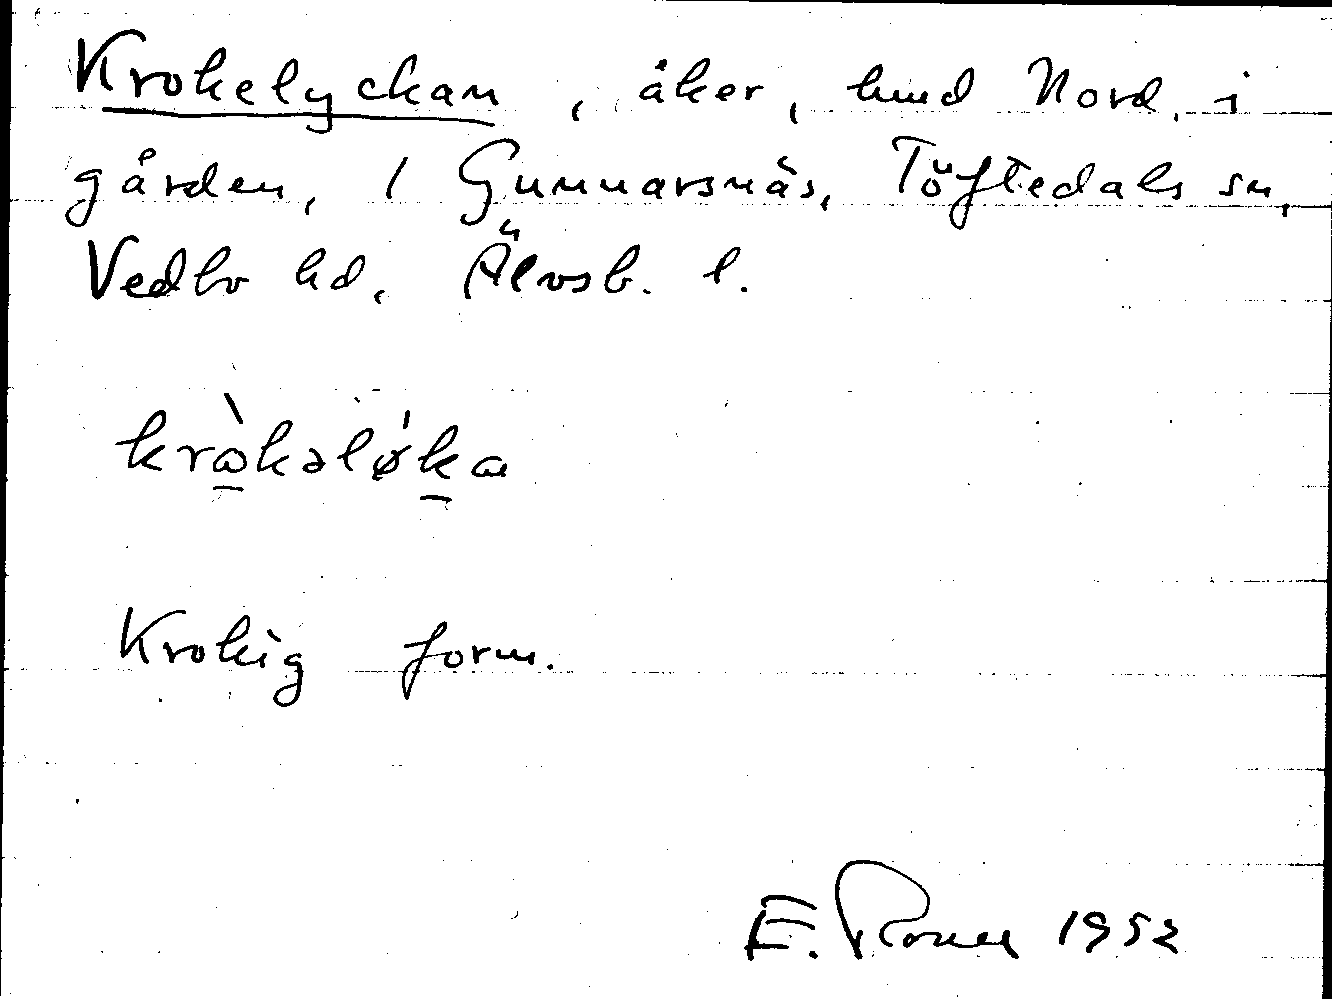 Krokelyckan, åker, hmd Nord. i
gården, 1 Gunnarsnäs, Töftedals sn,
Vedbo hd, Älvsb. l.
krὼkəløḵa
Krokig form.
E. 1952